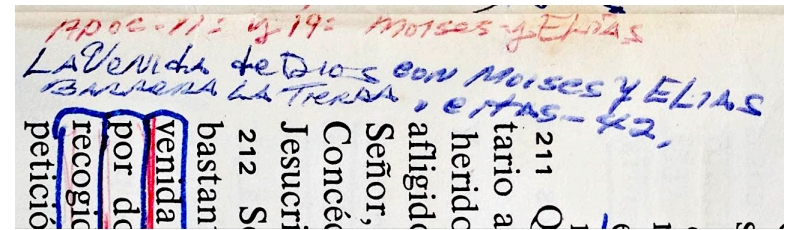 Apoc-11: y 19: Moises y Elias
La Venida de Dios con Moises y ELIAS
BARRERA LA TIERRA, e Mas-42,
211 Q
tario a
herido
afligido
Señor,
Concéd
Jesucri
212 Se
bastan
venida
por do
recogid
petició